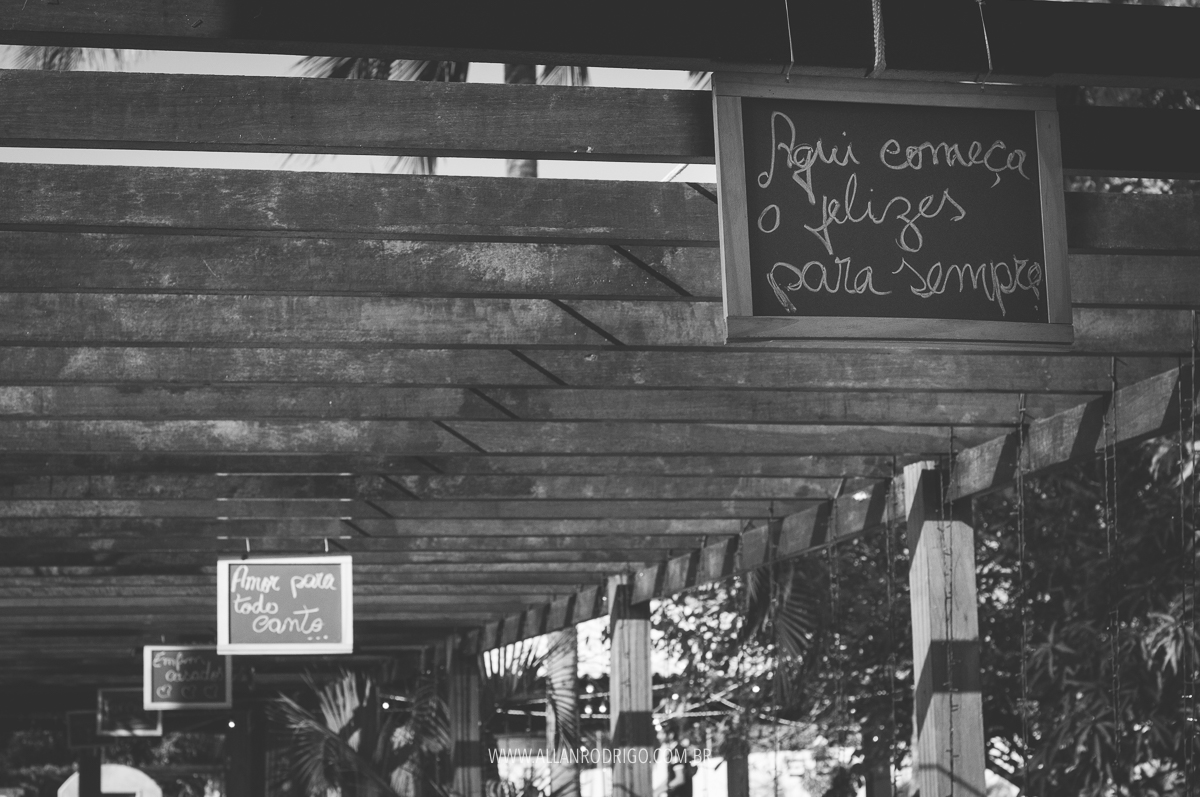 Aqui começa
o felizes
para sempre
Amor para
todo
canto...
Enfim
casados
WWW.ALLANRODRIGO.COM.BR